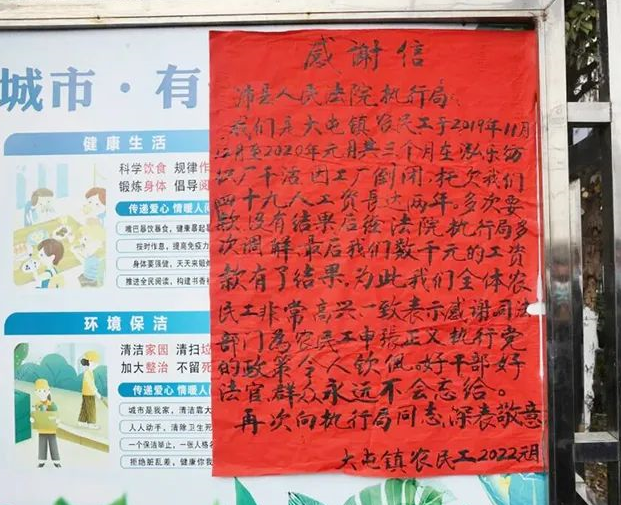 城市·有
健康生活
科学饮食 规律作
锻炼身体 倡导阅
传递爱心 情暖人间
嘴巴暴饮暴食,健康暴起暴
按时作息,提高免疫力
身体要强健,天天来锻
推进全民阅读,构建书香
环境保洁
清洁家园 清扫垃
加大整治 不留死
传递爱心 情暖人间
城市是我家,清洁靠大
人人动手,清除卫生死
一个保洁举止,一张人格名
拒绝脏乱差,健康你我
感謝信
沛县人民法院执行局:
我们是大屯镇农民工于2019年11月
12月至2020年元月共三个月在泓乐纺
织厂干活因工厂倒闭,托欠我们
四十九人工资長达两年。多次要
款没有结果后经法院执行局多
次调解最后我们数千元的工资
款有了结果。为此我们全体农
民工非常高兴一致表示感谢司法
部门为农民工申張正义执行党
的政策令人钦佩。好干部好
法官群众永远不会忘给。
再次向执行局同志,深表敬意
大屯镇农民工2022元月